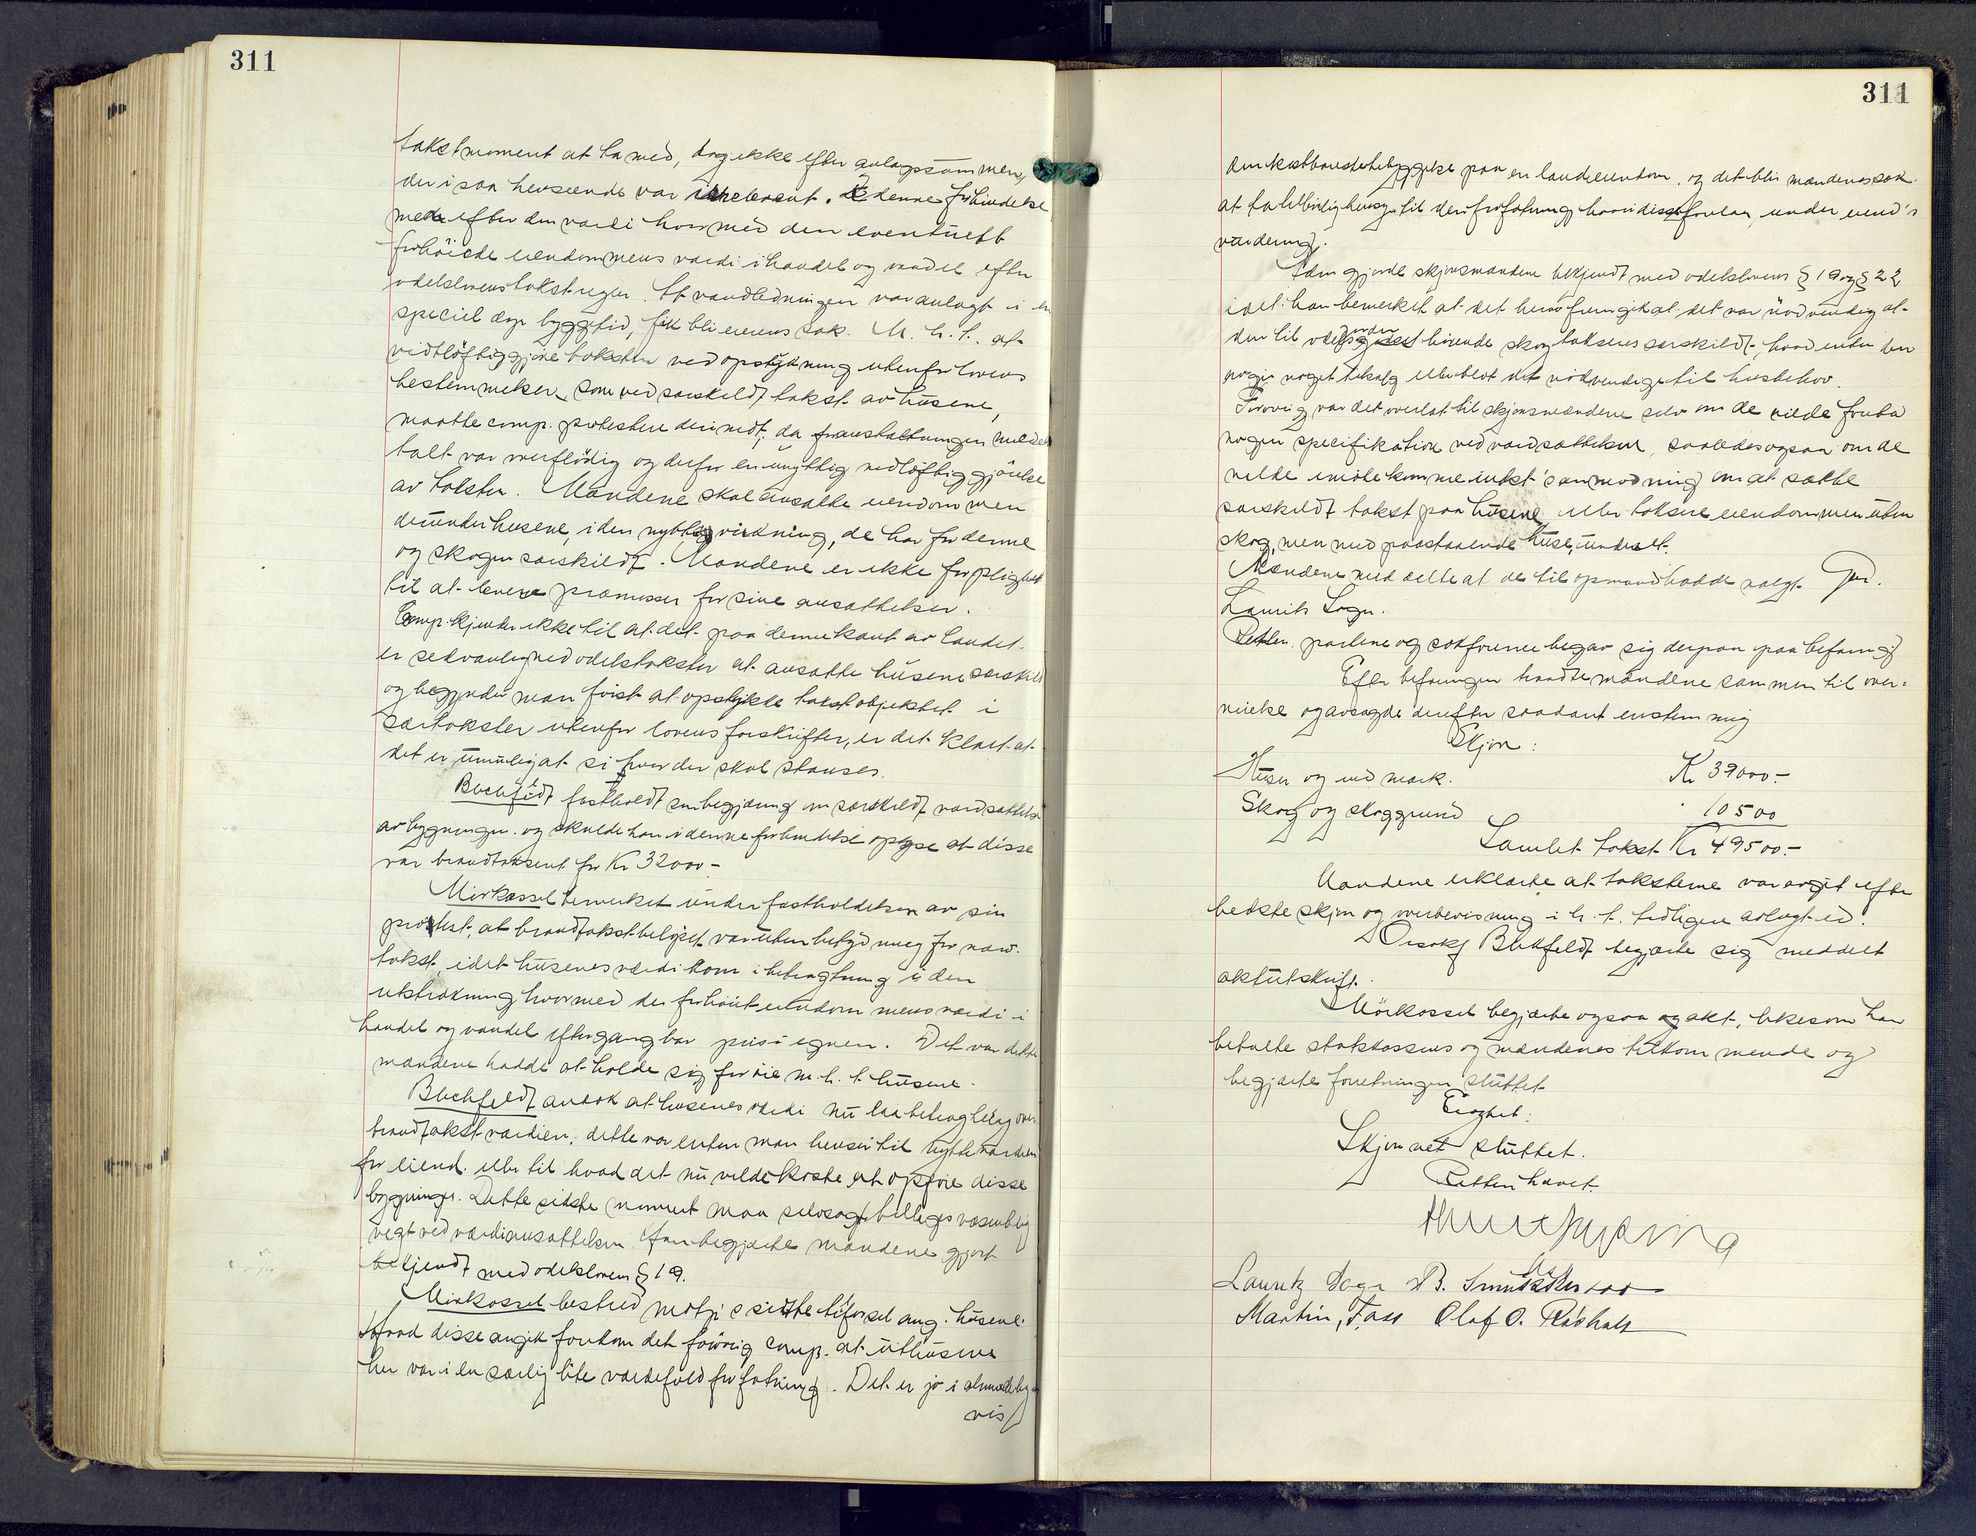 311
takstmoment at ta med, dog ikke efter anlægssummen,
der i saa henseende var irrelevant. denne forbindelse
med efter den værdi hvormed den eventuelt
forhöiede eiendommens værdi i handel og vandel efter
odelslovens takstregler. At vandledningen var anlagt i en
speciel dyr byggetid, fik bli eierens sak. M. h. t. at
vidtlöftiggjöre taksten ved opstykning utenfor lovens
bestemmelser, som ved særskildt takst av husene,
maatte comp. protestere derimot, da foranstaltningen
talt var overflödig og derfor en unyttig vidtlöftiggjörelse
av taksten. Mændene skal ansætte eiendommen
derunder husene, i den nyttig virkning, de har for denne
og skogen særskildt. Mændene er ikke forpligtet
til at levere præmisser for sine ansættelser.
Comp. kjender ikke til at det paa denne kant av landet
er sedvanlig ved odelstakster at ansætte husene særskilt
og begynder man först at opstykke takstobjektet i
særtakster utenfor lovens forskrifter, er det klart at
det er umulig at si hvor der skal stanses.
Buchfeldt fastholdt sin begjæring om særskildt værdsættelse
av bygningen og skulde han i denne forbindelse oplyse at disse
var brandtaksert for Kr 32000.-
Mörkassel bemerket under fastholdelsen av sin
protest, at brandtakstbelöpet var uten betydning for nærv.
takst, idet husenes værdi kom i betragtning i den
utstrækning hvormed de forhöiet eiendommens værdi i
handel og vandel efter gangbar pris i egnen. Det var dette
mændene hadde at holde sig for öie m. h. t. husene.
Buchfeldt antok at husenes værdi nu laa betragtelig over
brandtakstværdien, dette var enten man hensei til nytteværdien
for eiend. eller til hvad det nu vilde koste at opföre disse
bygninger. Dette sidste moment maa selvsagt tillegges væsentlig
vegt ved værdiansættelsen. Han begjærte mændene gjort
bekjendt med odelslovens § 19.
Mörkassel bestred motp.s sidste tilförsel ang. husene.
Hvad disse angik forekom det forövrig comp. at uthusene
her var i en særlig lite værdifuld forfatning. Det er jo i almindelig-
vis
311
den kostbareste bebyggelse paa en landeiendom, og det blir mændenes sak
at ta tilbörlig hensyn til den forfatning hvori disse foreları under eiend's
vurdering.
gjorde skjönsmændene bekjendt med odelslovens § 19 og § 22
idet han bemerket at det herav fremgik at det var nödvendig at
den til odelsgodset hörende skog takseres særskildt, hvad enten den
avgir noget tilsalg eller blot det nödvendige til husbehov.
Forövrig var det overlatt til skjönsmændene selv om de vilde foreta
nogen specifikation ved værdsættelsen, saaledes ogsaa om de
vilde imötekomme rekst's anmodning om at sætte
særskildt takst paa husene eller taksere eiendommen uten
skog, men med paastaaende huse, under et.
Mændene meddelte at de til opmand hadde valgt Grd.
Laurits Soga.
Retten, partene og sakförerne begav sig derpaa paa befaring
Efter befaringen traadte mændene sammen til over-
veielse og avsagde derefter saadant enstemmig
Skjön:
Huser og ind mark. Kr 39000.-
Skog og skoggrund 10500
Samlet takst Kr 49500.-
Mændene erklærte at taksterne var avgit efter
bedste skjön og overbevisning i h. t. tidligere avlagt ed.
O.r.sakf Buchfeldt begjærte sig meddelt
aktutskrift.
Mörkassel begjærte ogsaa akt, likesom han
betalte statskassens og mændenes tilkommende og
begjærte forretningen sluttet
Eragtet:
Skjönnet sluttet.
Retten hævet.
Lauritz Soga B. Smukkestad
Martin, Foss Olaf O. Råsholt